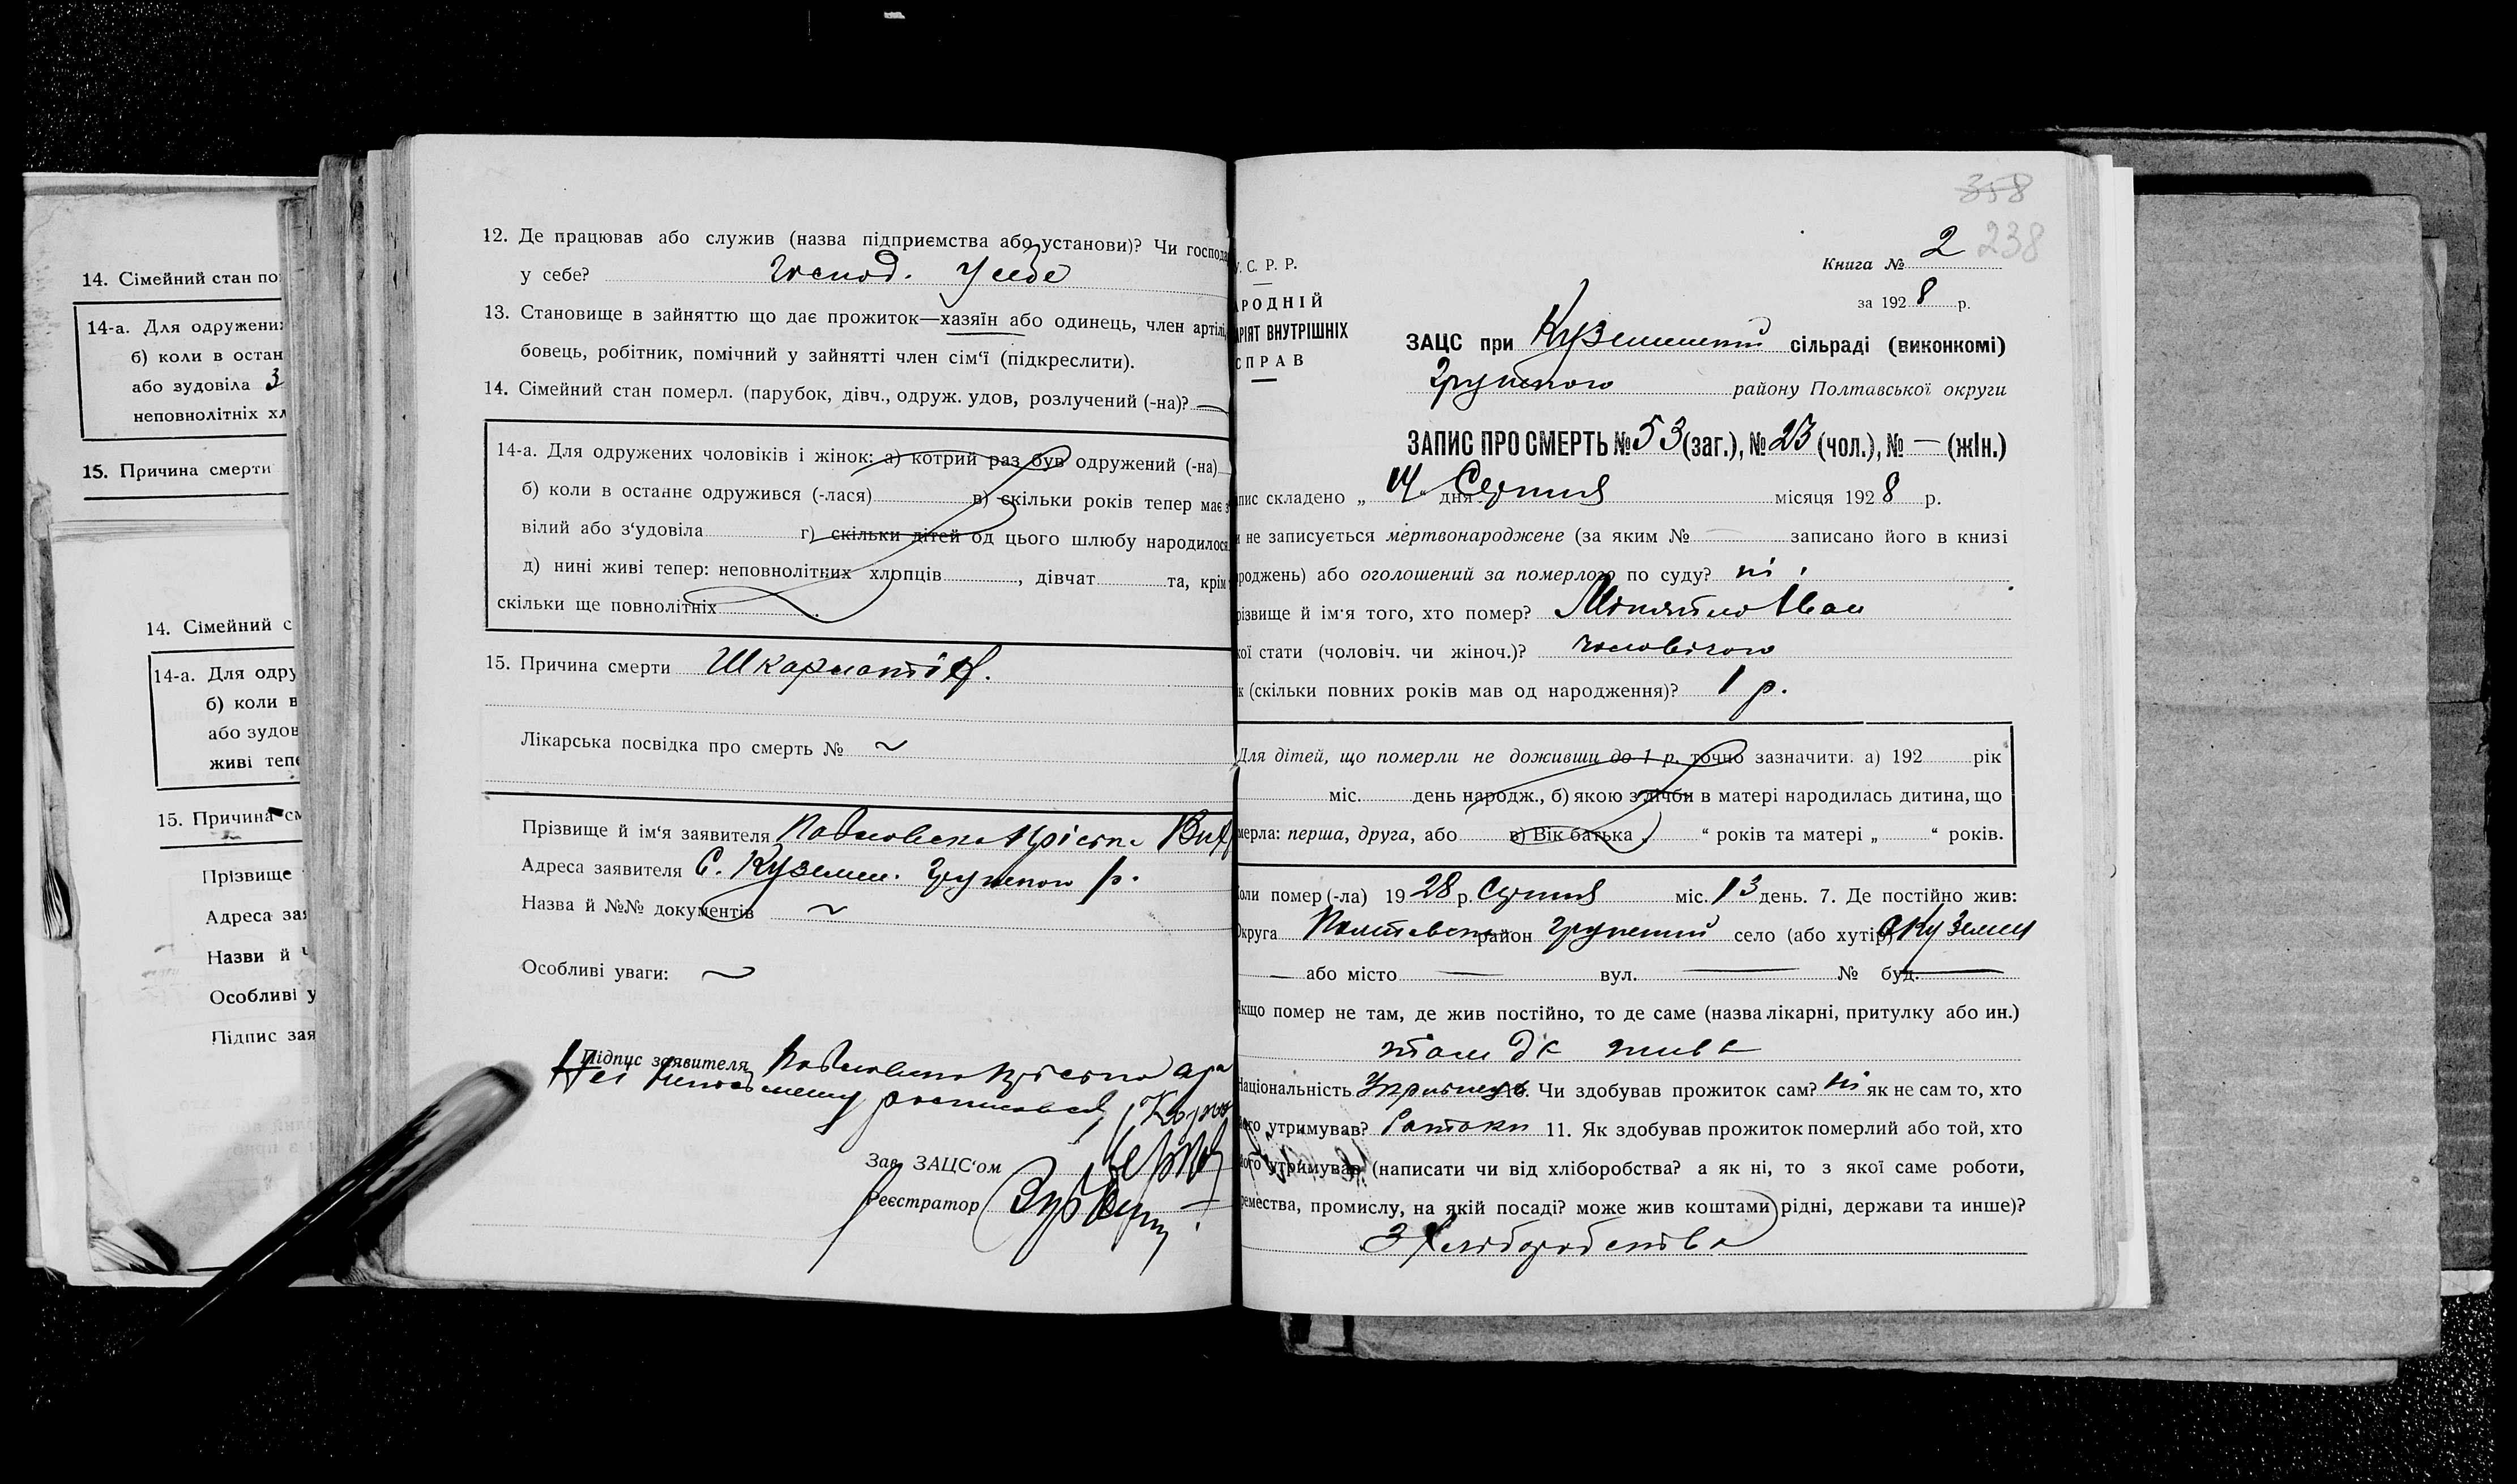 14. Сімейний стан по
14-а. Для одружених
б) коли в остан
або зудовіла З
неповнолітніх хл
15. Причина смерти
14. Сімейний с
14-а. Для одру
б) коли в
або зудов
живі тепе
15. Причина см
Прізвище
Адреса зая
Назви й ч
Особливі у
Підпис зая
12. Де працював або служив (назва підприємства або установи)? Чи господа
у себе? господ. у себе
13. Становище в зайняттю що дає прожиток—хазяїн або одинець, член артілі,
бовець, робітник, помічний у зайнятті член сім'ї (підкреслити).
14. Сімейний стан померл. (парубок, дівч., одруж. удов, розлучений (-на)? —
14-а. Для одружених чоловіків і жінок: а) котрий раз був одружений (-на)
б) коли в останнє одружився (-лася) в) скільки років тепер має з
вілий або з'удовіла г) скільки дітей од цього шлюбу народилося
д) нині живі тепер: неповнолітних хлопців , дівчат та, крім
скільки ще повнолітніх .
15. Причина смерти Шкарлатіна.
Лікарська посвідка про смерть № ~
Прізвище й ім'я заявителя
Адреса заявителя С. Куземен. Грунського р.
Назва й №№ документів ~
Особливі уваги: ~
Підпис заявителя
неї неписьменну росписався
Зав. ЗАЦС'ом
Реєстратор
358
238
Книга № 2
за 1928 р.
У. С. Р. Р.
АРОДНІЙ
АРІЯТ ВНУТРІШНІХ
СПРАВ
ЗАЦС при Куземенській сільраді (виконкомі)
Грунського району Полтавської округи
ЗАПИС ПРО СМЕРТЬ № 53 (заг.), № 23 (чол.), № — (жін.)
пис складено „14" дня Серпня місяця 1928 р.
и не записується мертвонароджене (за яким № — записано його в книзі
ароджень) або оголошений за померлого по суду? ні.
різвище й ім'я того, хто помер? Іван
кої стати (чоловіч. чи жіноч.)? чоловічого
к (скільки повних років мав од народження)? 1 р.
Для дітей, що померли не доживши до 1 р. точно зазначити. а) 192 рік
міс. день народж., б) якою злічби в матері народилась дитина, що
мерла: перша, друга, або в) Вік батька „ " років та матері „ " років.
Коли помер (-ла) 1928 р. Серпня міс. 13 день. 7. Де постійно жив:
Округа Полтавська район Грунський село (або хутір) с. Куземин
— або місто — вул. — № буд. —
Якщо помер не там, де жив постійно, то де саме (назва лікарні, притулку або ин.)
там де жив
Національність Українець 10. Чи здобував прожиток сам? ні як не сам то, хто
його утримував? Батьки 11. Як здобував прожиток померлий або той, хто
його утримував (написати чи від хліборобства? а як ні, то з якої саме роботи,
ремества, промислу, на якій посаді? може жив коштами рідні, держави та инше)?
З хліборобства